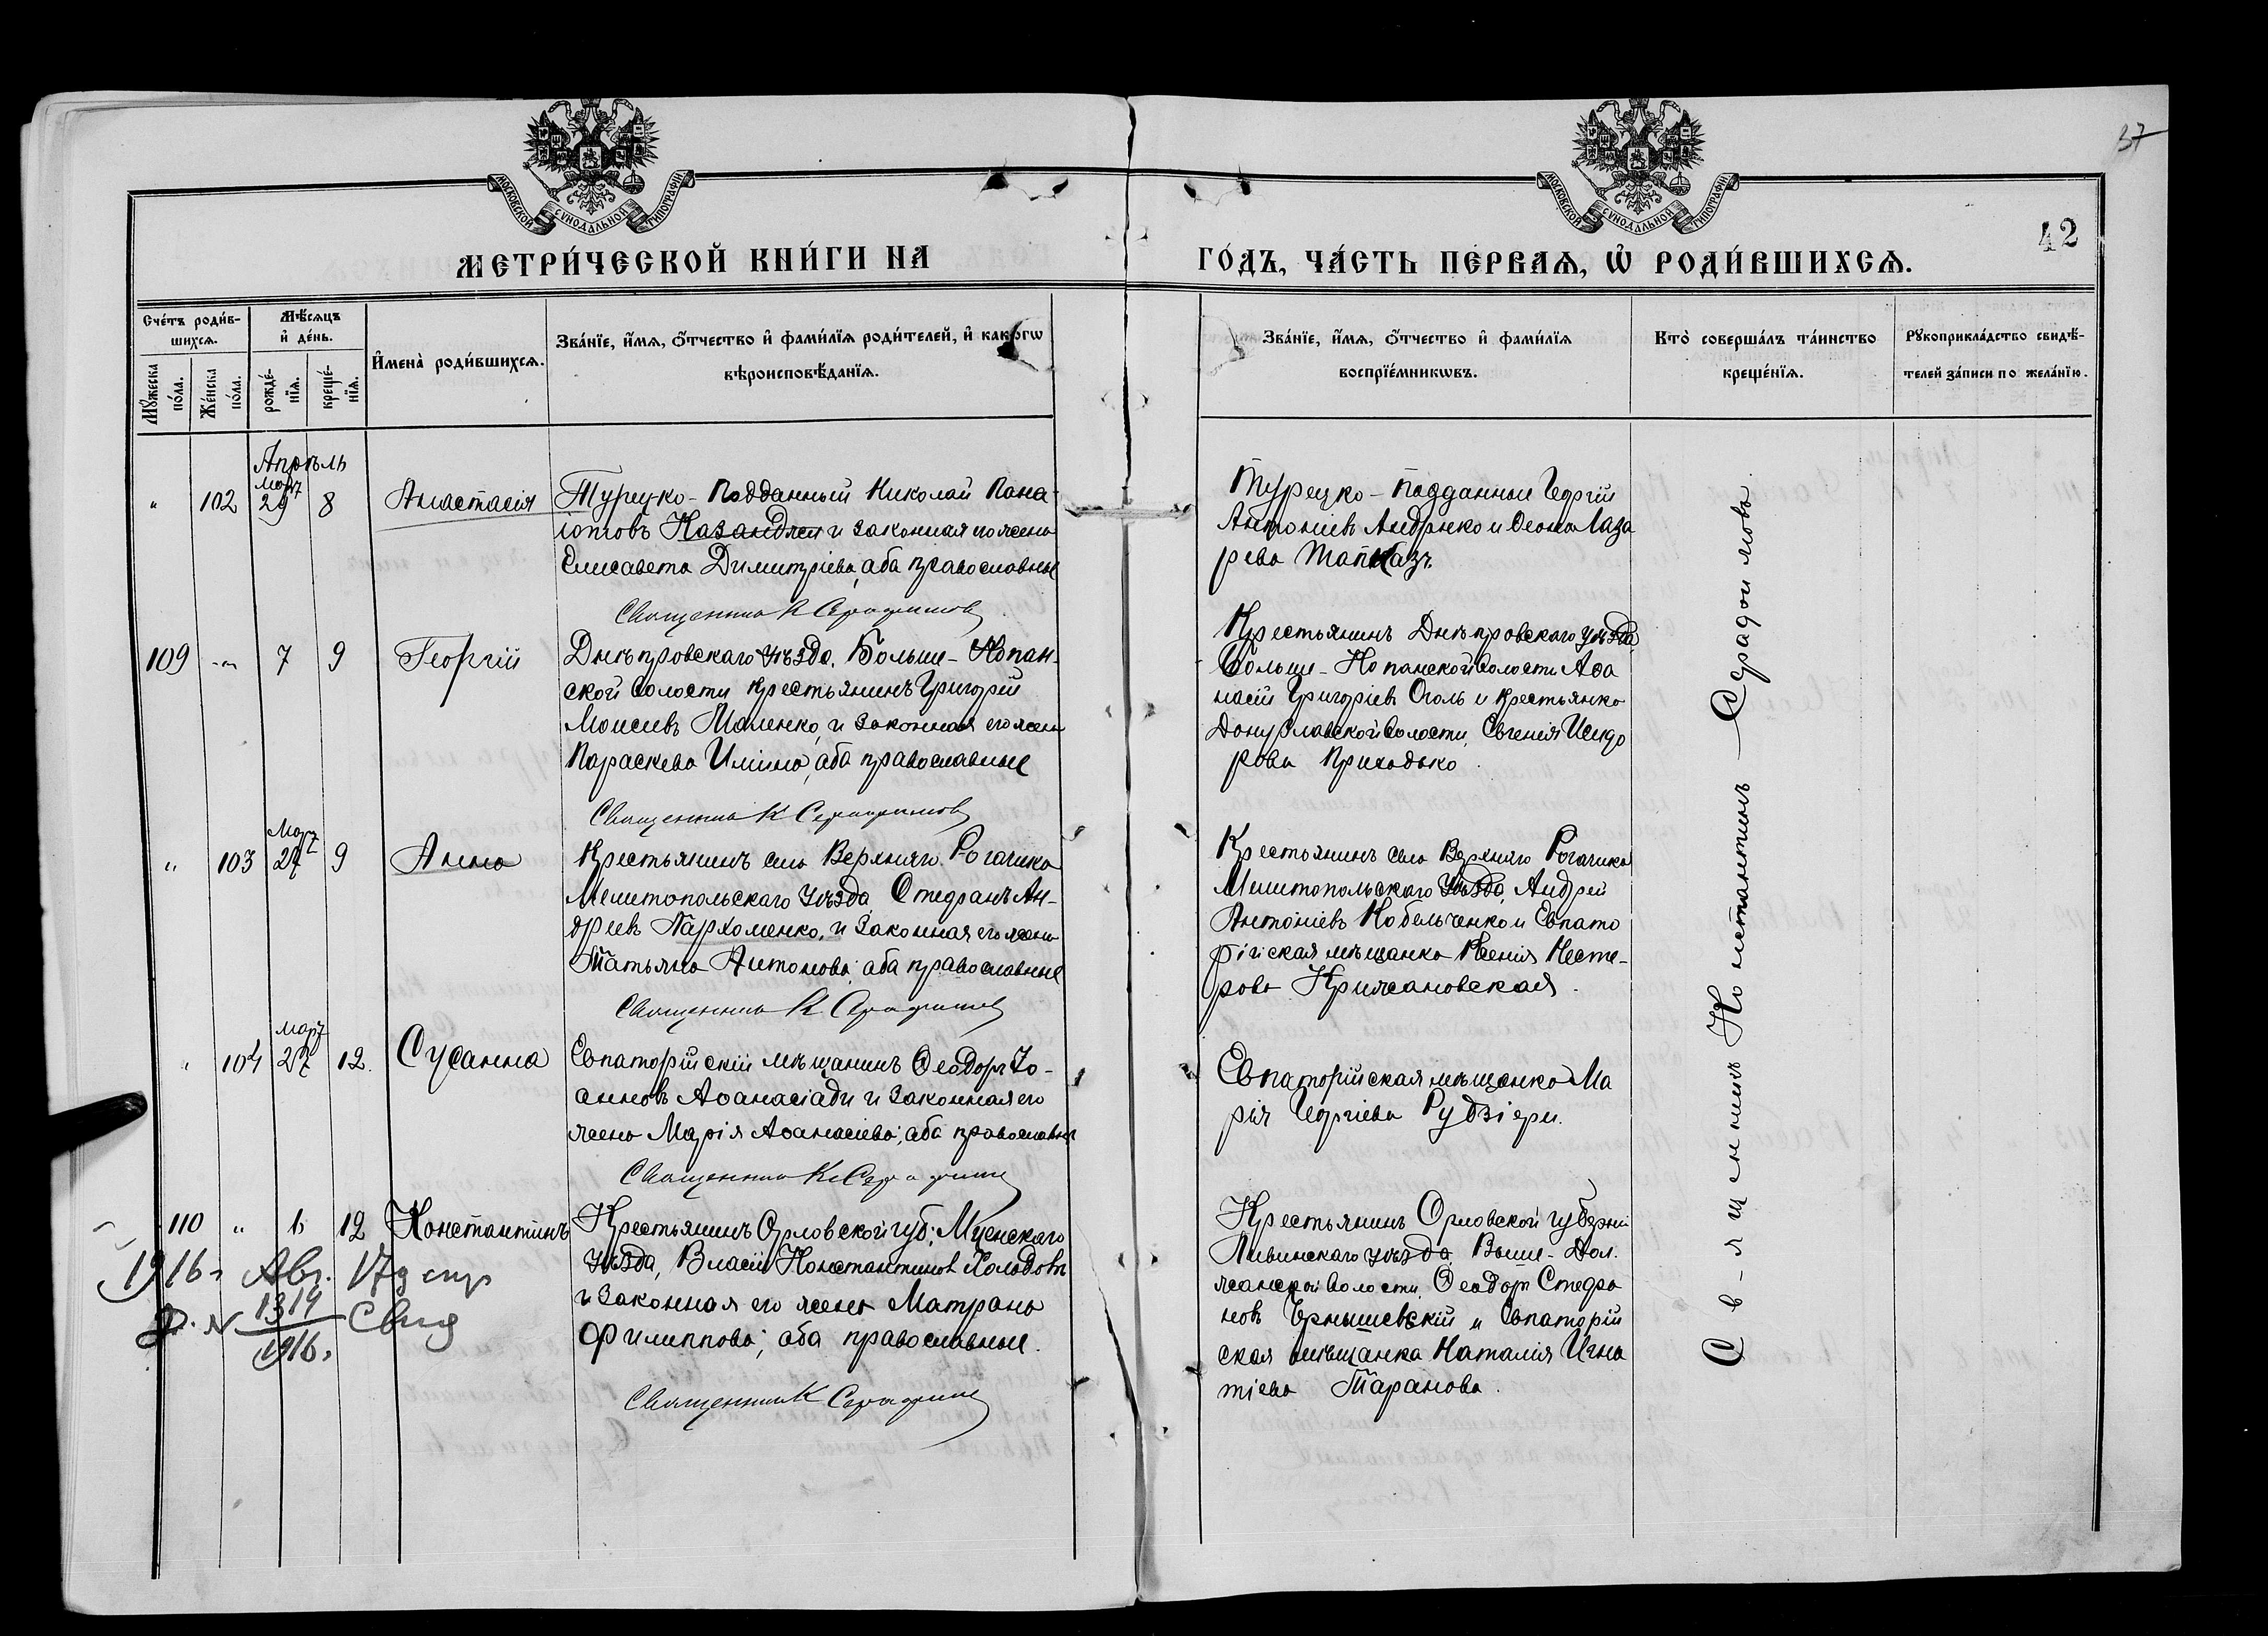 37
42
МОСКОВСКОЙ СѴНОДАЛЬНОЙ ТИПОГРАФІИ
МОСКОВСКОЙ СѴНОДАЛЬНОЙ ТИПОГРАФІИ
МЕТРИ́ЧЕСКОЙ КНИ́ГИ НА
ГО́ДЪ, ЧА́СТЬ ПЕ́РВАѦ, Ѡ҆ РОДИ́ВШИХСѦ.
Сче́тъ роди́в-
шихсѧ.
Мѣ́сѧцъ
и҆ де́нь.
Мꙋ́жеска
по́ла.
Же́нска
по́ла.
рожде́-
нїѧ.
креще́-
нїѧ.
И҆мена̀ роди́вшихсѧ.
Зва́нїе, и҆́мѧ, ѻ҆́тчество и҆ фами́лїѧ роди́телей, и҆ како́гѡ
вѣроисповѣ́данїѧ.
Зва́нїе, и҆́мѧ, ѻ҆́тчество и҆ фами́лїѧ
воспрїе́мникѡвъ.
Кто̀ соверша́лъ та́инство
креще́нїѧ.
Рꙋкоприкла́дство свидѣ́-
телей за́писи по жела́нїю.
Апрѣль
Март
" 102 29 8 Анастасія
Турецко-Подданный Николай Пана-
іотовъ Казанджи и законная его жена
Елисавета Димитріева, оба православные
Священник К Серафимовъ
Турецко-подданный Георгій
Антоніевъ Андрнко и Ѳеона Лаза
рева Тапказъ
109 -"- 7 9 Георгій
Днѣпровскаго уѣзда, Больше-Копан-
ской волости крестьянинъ Григорій
Моисеевъ Маленко, и законная его жена
Параскева Ильина, оба православные
Священник К Серафимовъ
Крестьянинъ Днѣпровскаго уѣзда
Больше-Копанской волости Аѳа
насій Григоріевъ Оголь и крестьянка
Донузлавской волости, Евгенія Исидо
рова Приходько
Март
" 103 27 9 Анна
Крестьянинъ села Верхняго Рогачика
Мелитопольскаго уѣзда, Стефанъ Ан-
дреевъ Пархоменко, и законная его жена
Татьяна Антонова, оба православные
Священник К Серафимовъ
Крестьянинъ села Верхняго Рогачика
Мелитопольскаго уѣзда, Андрей
Антоніевъ Кобельченко и Евпато
рійская мѣщанка Ксенія Несте-
рова Крижановская.
Март
" 104 27 12. Сусанна
Евпаторійскій мѣщанинъ Ѳеодоръ Іо-
анновъ Аѳанасіади и законная его
жена Марія Аѳанасіева; оба православные
Священник К Серафимовъ
Евпаторійская мѣщанка Ма
рія Георгіева Рудзіери.
110 " 6 12 Константинъ
Крестьянинъ Орловской губ; Мценскаго
уѣзда, Власій Константиновъ Холодовъ
и законная его жена Матрона
Филиппова; оба православные.
Священник К Серафимовъ
Крестьянинъ Орловской губерніи
Ливинскаго уѣзда, Выше-Дол.
жанской волости, Ѳеодоръ Стефа
новъ Чернышевскій и Евпаторій
ская мѣщанка Наталія Игна
тіева Таранова.
1916 г Авг. 17
№ 1314
1916.
Священникъ Константинъ Серафимовъ